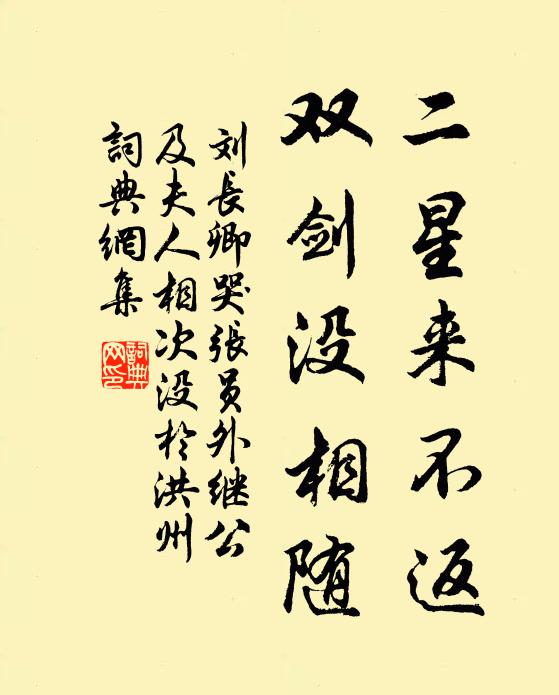 二星来不返
双剑没相随
刘長卿哭張员外继公
及夫人相次没於洪州
詞典網集
詞典
网印